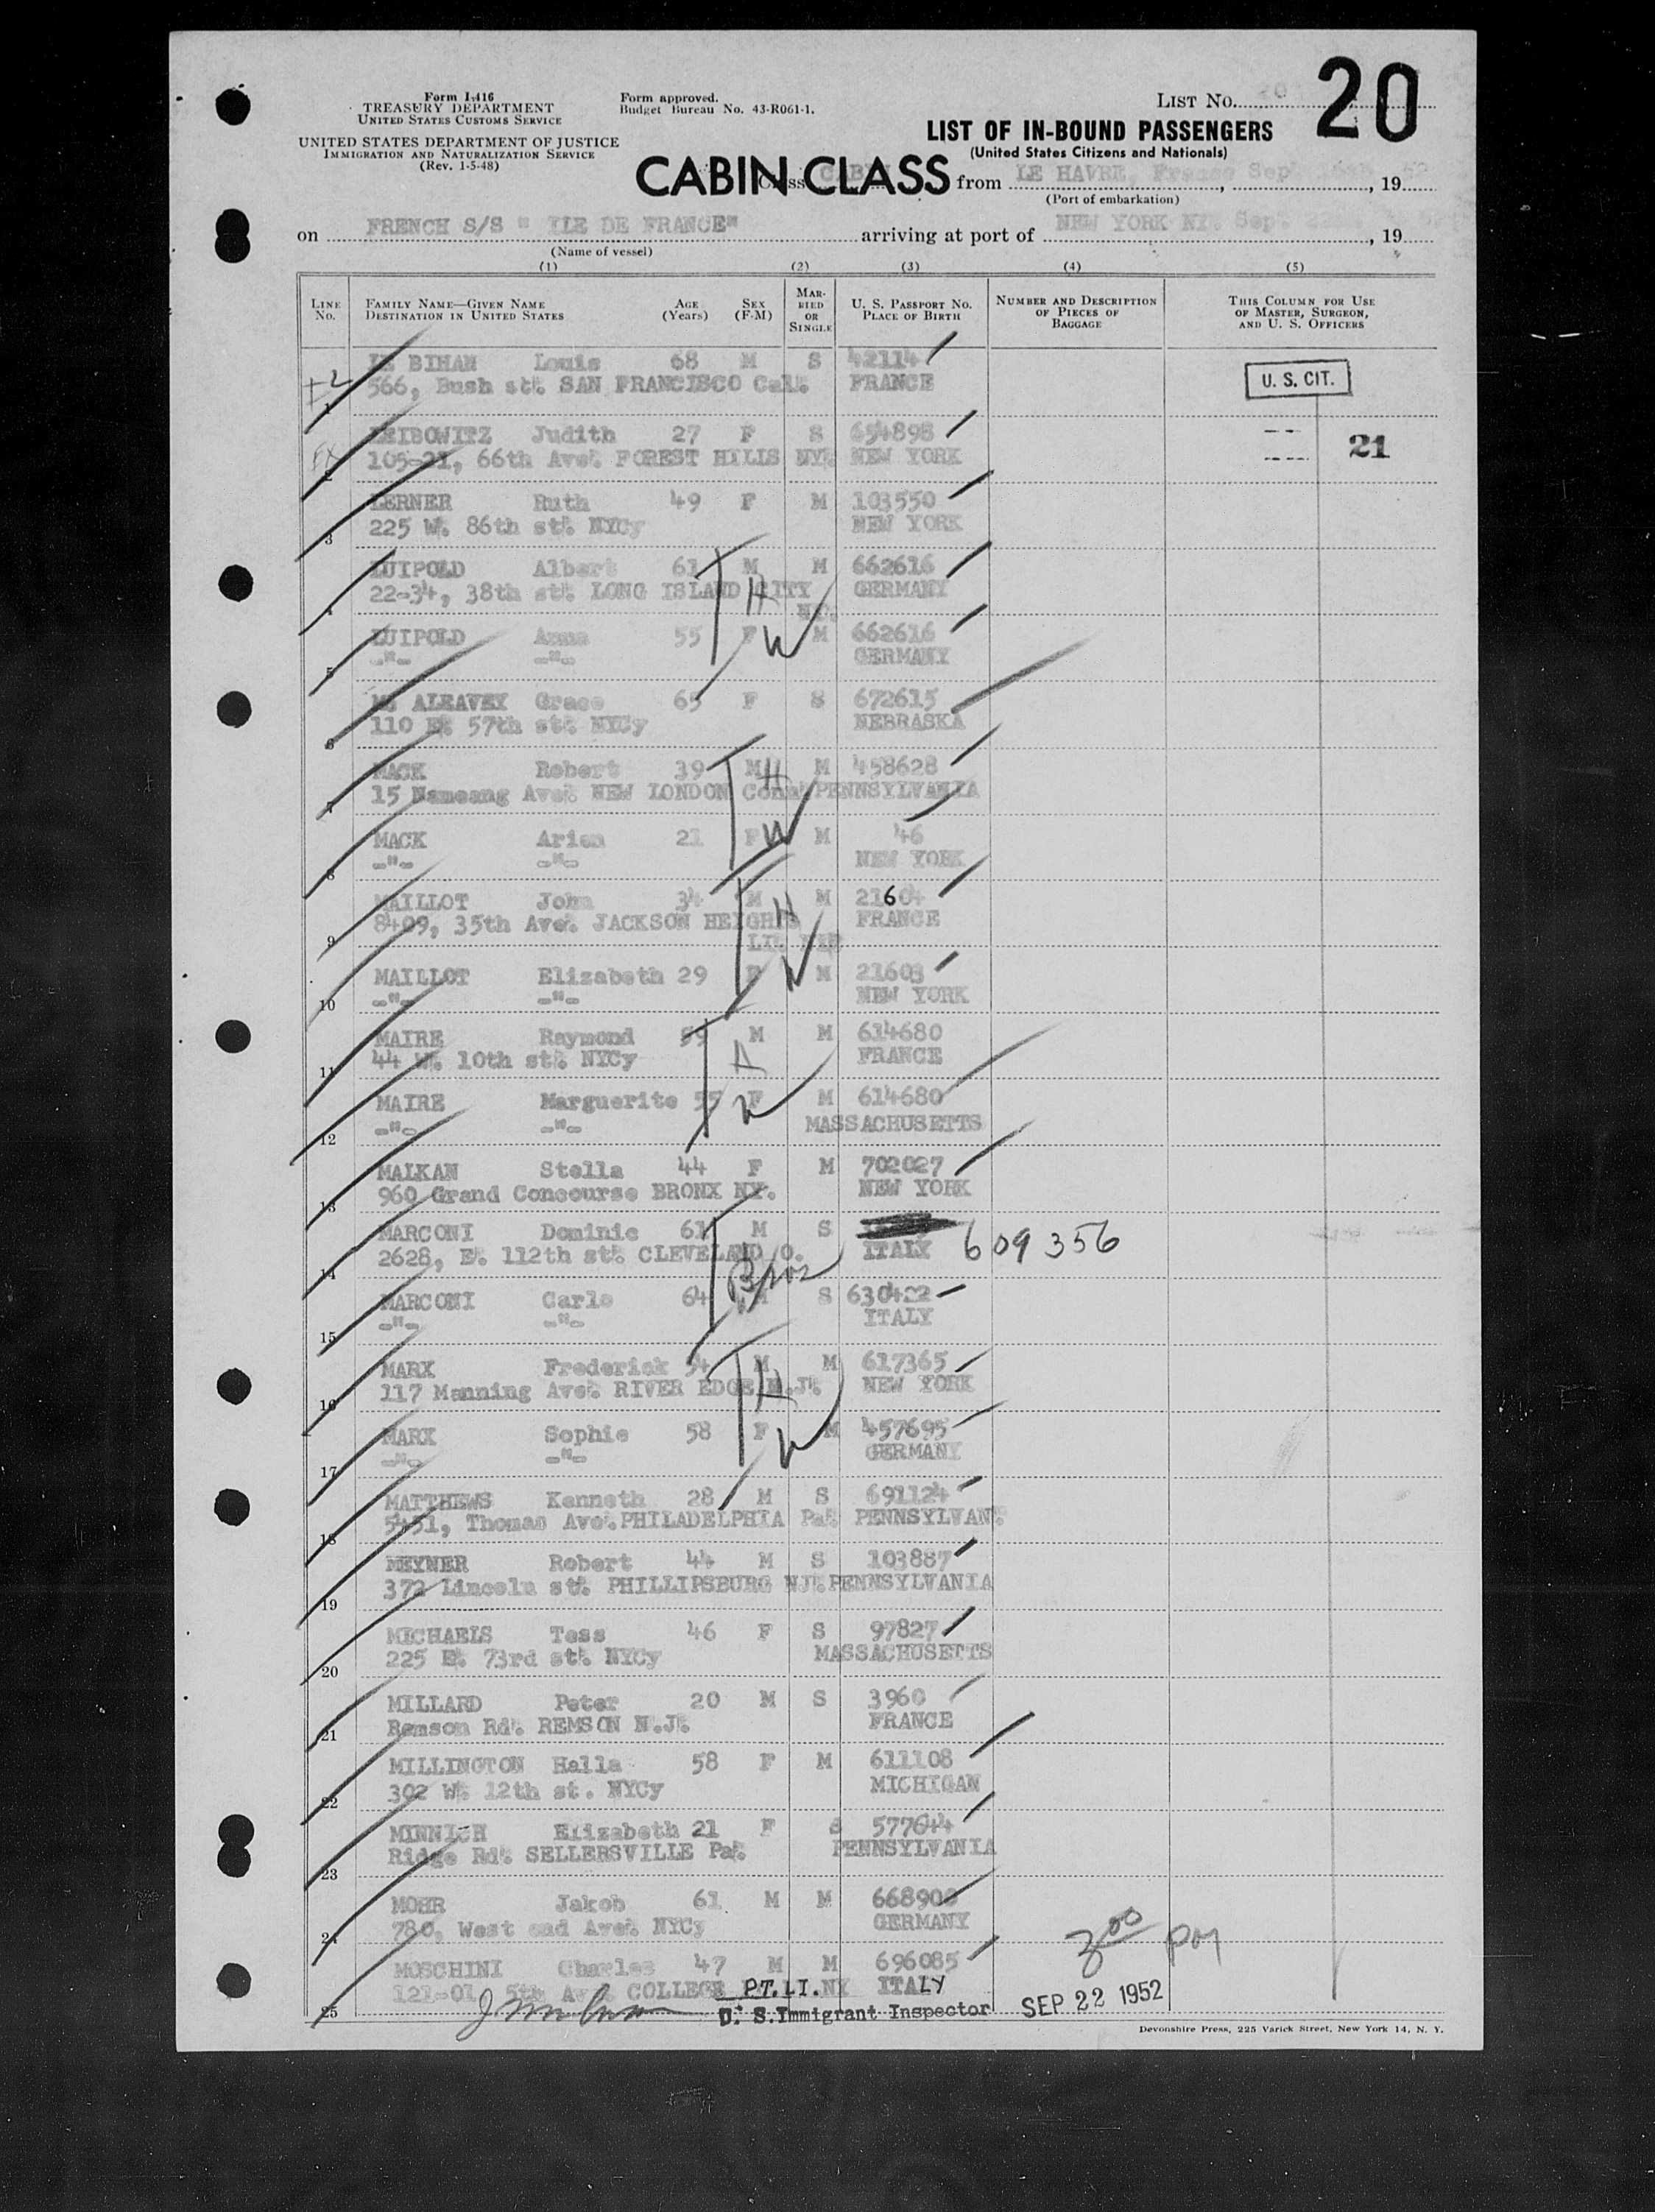 Form I-416
TREASURY DEPARTMENT
UNITED STATES CUSTOMS SERVICE
UNITED STATES DEPARTMENT OF JUSTICE
IMMIGRATION AND NATURALIZATION SERVICE
(Rev. 1-5-48)
Form approved.
Budget Bureau No. 43-R061-1.
LIST NO. 20
LIST OF IN-BOUND PASSENGERS
(United States Citizens and Nationals)
CABIN CLASS from LE HAVRE, France Sept , 19
(Port of embarkation)
on FRENCH S/S " ILE DE FRANCE" arriving at port of NEW YORK NY. Sept , 19
(Name of vessel)
(1) (2) (3) (4) (5)
LINE NO. FAMILY NAME—GIVEN NAME DESTINATION IN UNITED STATES AGE (Years) SEX (F-M) MARRIED OR SINGLE U. S. PASSPORT NO. PLACE OF BIRTH NUMBER AND DESCRIPTION OF PIECES OF BAGGAGE THIS COLUMN FOR USE OF MASTER, SURGEON, AND U. S. OFFICERS
1 LE BIHAN Louis 68 M S 42114
566, Bush st. SAN FRANCISCO Cal. FRANCE
U. S. CIT.
2 LEIBOWITZ Judith 27 F S 654898
105-21, 66th Ave. FOREST HILLS NY. NEW YORK
21
3 LERNER Ruth 49 F M 103550
225 W. 86th st. NYCy NEW YORK
4 LUIPOLD Albert 61 M M 662616
22-34, 38th st. LONG ISLAND CITY GERMANY
NY.
5 LUIPOLD Anna 55 F M 662616
-"- -"- GERMANY
6 Mc ALEAVEY Grace 65 F S 672615
110 E. 57th st. NYCy NEBRASKA
7 MACK Robert 39 M M 458628
15 Nameang Ave. NEW LONDON Conn. PENNSYLVANIA
8 MACK Arien 21 F M 46
-"- -"- NEW YORK
9 MAILLOT John 34 M M 21604
8409, 35th Ave. JACKSON HEIGHTS FRANCE
10 MAILLOT Elizabeth 29 F M 21603
-"- -"- NEW YORK
11 MAIRE Raymond 59 M M 614680
44 W. 10th st. NYCy FRANCE
12 MAIRE Marguerite 55 F M 614680
-"- -"- MASSACHUSETTS
13 MALKAN Stella 44 F M 702027
960 Grand Concourse BRONX NY. NEW YORK
14 MARCONI Dominic 61 M S
2628, E. 112th st. CLEVELAND O. ITALY 609356
Bros
15 MARCONI Carlo 64 M S 630422
-"- -"- ITALY
16 MARX Frederick 54 M M 617365
117 Manning Ave. RIVER EDGE N.J. NEW YORK
17 MARX Sophie 58 F M 457695
-"- -"- GERMANY
18 MATTHEWS Kenneth 28 M S 691124
5451, Thomas Ave. PHILADELPHIA Pa. PENNSYLVAN.
19 MEYNER Robert 44 M S 103887
372 Lincoln st. PHILLIPSBURG NJ. PENNSYLVANIA
20 MICHAELS Tess 46 F S 97827
225 E. 73rd st. NYCy MASSACHUSETTS
21 MILLARD Peter 20 M S 3960
Remson Rd. REMSON N.J. FRANCE
22 MILLINGTON Halla 58 F M 611108
302 W. 12th st. NYCy MICHIGAN
23 MINNICH Elizabeth 21 F S 577644
Ridge Rd. SELLERSVILLE Pa. PENNSYLVANIA
24 MOHR Jakob 61 M M 668908
780, West end Ave. NYCy GERMANY
3 00 PM
25 MOSCHINI Charles 47 M M 696085
121-01 5th Ave. COLLEGE PT.LI. NY ITALY
U. S. Immigrant Inspector SEP 22 1952
Devonshire Press, 225 Varick Street, New York 14, N. Y.